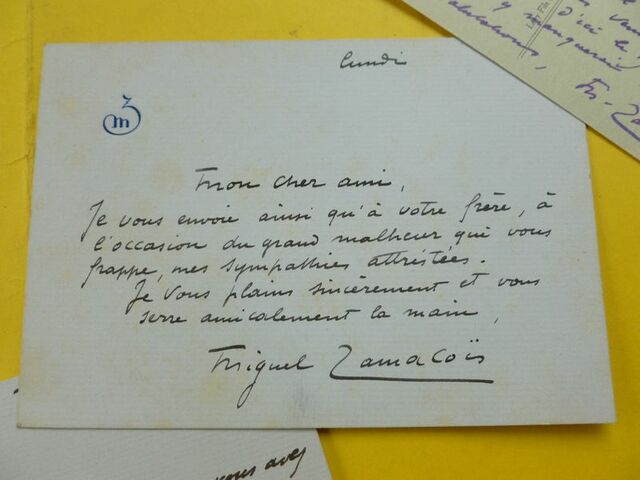 lundi
m
Mon cher ami,
Je vous envoie ainsi qu'à votre frère, à
l'occasion du grand malheur qui vous
frappe, mes sympathies attristées.
Je vous plains sincèrement et vous
serre amicalement la main,
Miguel Zamacoïs
d'ici le
y manquerai
vous avez